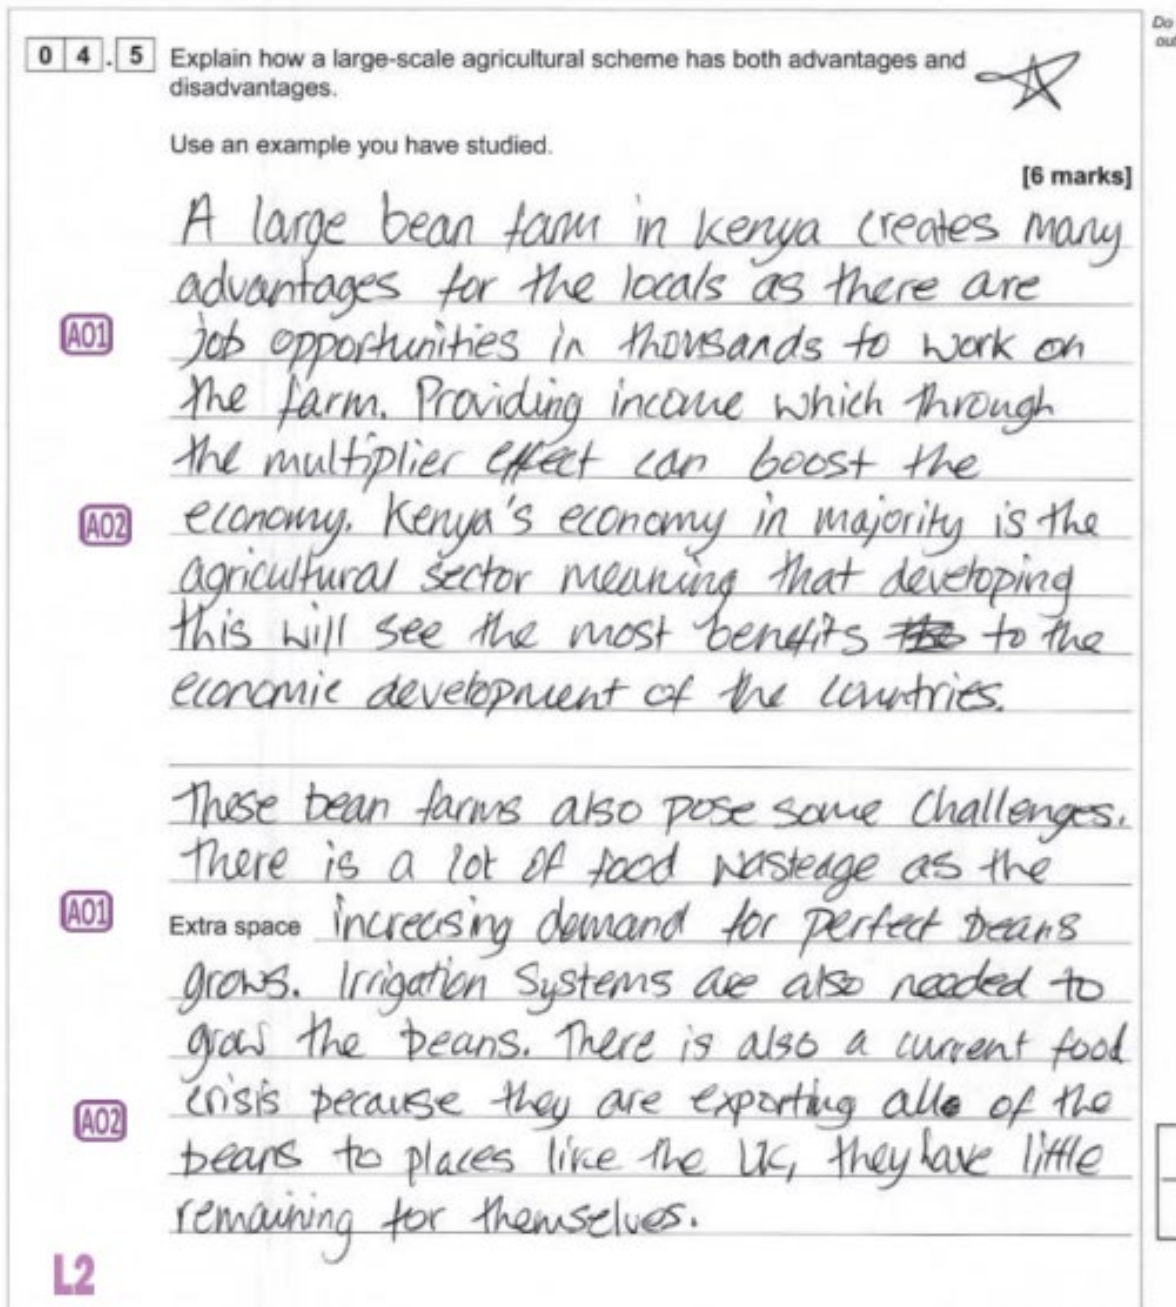 Do
out
0 4 . 5 Explain how a large-scale agricultural scheme has both advantages and
disadvantages.
Use an example you have studied.
[6 marks]
A large bean farm in Kenya creates many
advantages for the locals as there are
AO1 job opportunities in thousands to work on
the farm. Providing income which through
the multiplier effect can boost the
AO2 economy. Kenya's economy in majority is the
agricultural sector meaning that developing
this will see the most benefits to the
economic development of the countries.
These bean farms also pose some challenges.
There is a lot of food wasteage as the
AO1 Extra space increasing demand for perfect beans
grows. Irrigation systems are also needed to
grow the beans. There is also a current food
AO2 crisis because they are exporting all of the
beans to places like the UK, they have little
remaining for themselves.
L2